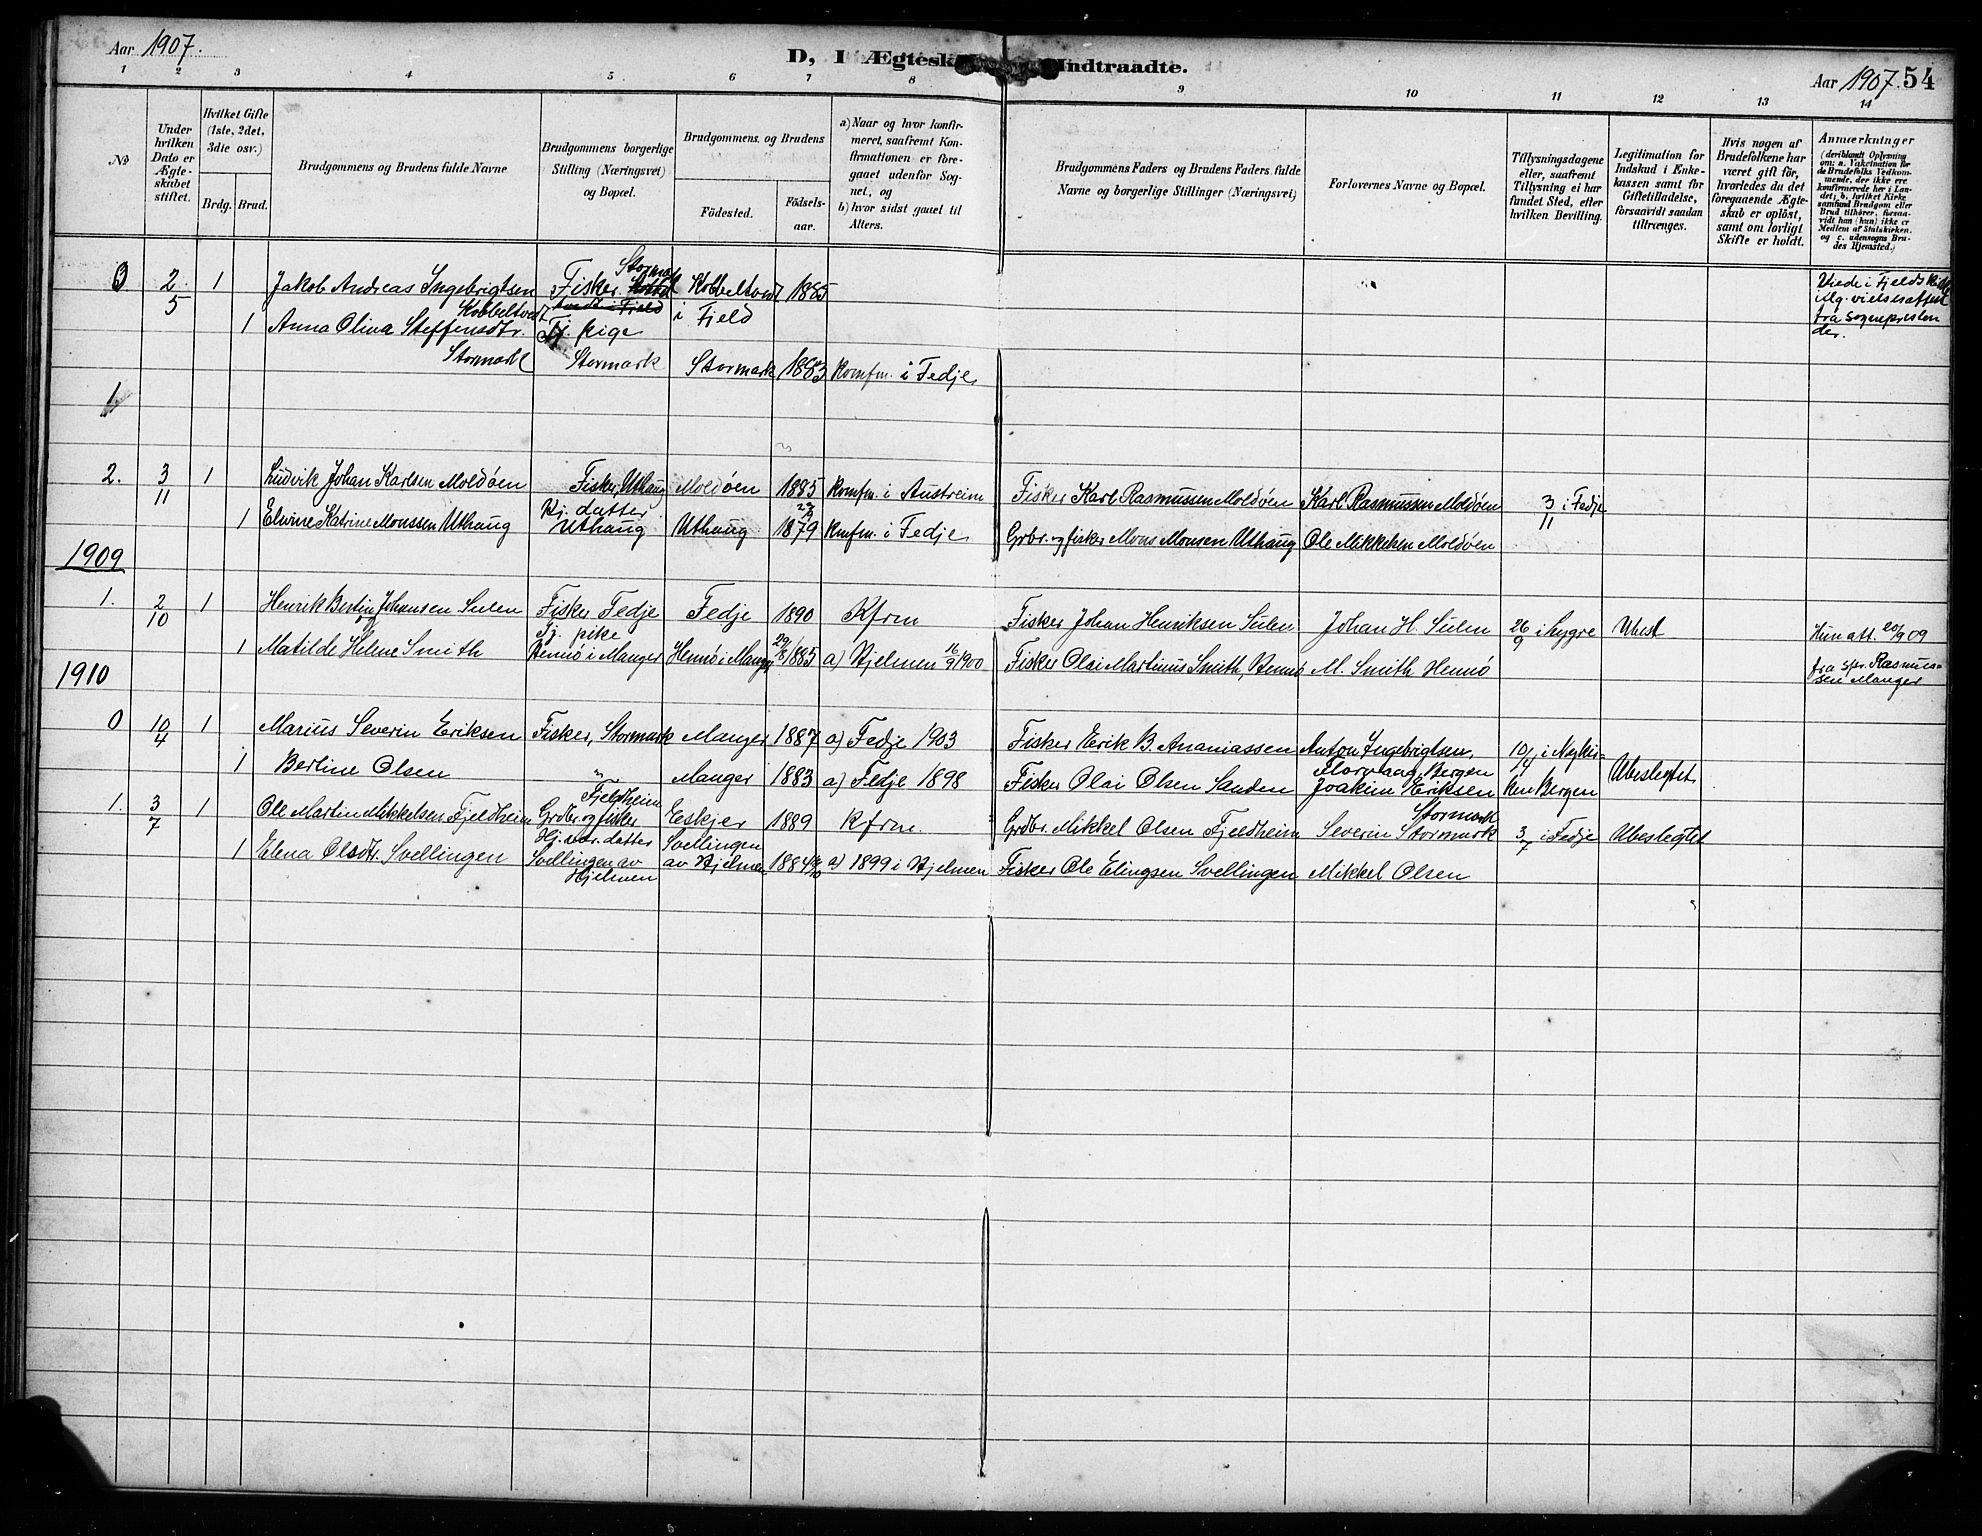 Aar 1907.
D, I Ægtesk Indtraadte.
Aar 1907. 54
1 2 3 4 5 6 7 8 9 10 11 12 13 14
No
Under hvilken Dato er Ægteskabet stiftet.
Hvilket Gifte (1ste, 2det, 3die osv.)
Brdg. Brud.
Brudgommens og Brudens fulde Navne
Brudgommens borgerlige Stilling (Næringsvei) og Bopæl.
Brudgommens og Brudens
Fødested. Fødselsaar.
a) Naar og hvor konfirmeret, saafremt Konfirmationen er foregaaet udenfor Sognet, og
b) hvor sidst gaaet til Alters.
Brudgommens Faders og Brudens Faders fulde Navne og borgerlige Stillinger (Næringsvei)
Forlovernes Navne og Bopæl.
Tillysningsdagene eller, saafremt Tillysning ei har fundet Sted, efter hvilken Bevilling.
Legitimation for Indskud i Enkekassen samt for Giftetilladelse, forsaavidt saadan tiltrænges.
Hvis nogen af Brudefolkene har været gift før, hvorledes da det foregaaende Ægteskab er opløst, samt om lovligt Skifte er holdt.
Anmærkninger
(deriblandt Oplysning om: a. Vakcination for de Brudefolks Vedkommende, der ikke ere konfirmerede her i Landet; b. hvilket Kirkesamfund Brudgom eller Brud tilhører, forsaavidt han (hun) ikke er Medlem af Statskirken, og c. udensogns Brudes Hjemsted.)
0 2/5 1 Jakob Andreas Ingebrigtsen Kobbeltvedt Fisker Stormark Kobbeltvedt i Fjeld 1885
Viede i Fjelds Kirke
iflg. vielsesattest
fra sognepresten
der.
1 Anna Olina Steffensdtr. Stormark Tj. pige Stormark Stormark 1883 Komfm. i Fedje
1
2. 3/11 1 Ludvik Johan Karlsen Moldøen Fisker, Uthaug Moldøen 1885 Komfm. i Austreim Fisker Karl Rasmussen Moldøen Karl Rasmussen Moldøen 3/11 i Fedje
1 Elvine Katrine Monssen Uthaug Hj. datter Uthaug Uthaug 1879 Kmfm. i Fedje Grbr. og fisker Mons Monsen Uthaug Ole Mikkelsen Moldøen
1909
1. 2/10 1 Henrik Bertin Johansen Sulen Fisker Fedje Fedje 1890 Kfrm Fisker Johan Henriksen Sulen Johan H. Sulen 26/9 i Lygre Ubesl
Hun att. 20/9 09
fra spr. Rasmus-
sen Manger
1 Matilde Helene Smith Tj. pike Hennø i Manger Hennø i Manger 29/8 1885 a) Hjelmen 16/9 1900 Fisker Olai Martinus Smith, Hennø M. Smith Hennø
1910
0 10/4 1 Marius Severin Eriksen Fisker, Stormark Manger 1887 a) Fedje 1903 Fisker Erik B. Ananiassen Anton Ingebrigtsen, Florvaag, Bergen 10/4 i Nykir-
1 Bertine Olsen " Manger 1883 a) Fedje 1898 Fisker Olai Olsen Sanden Joakim Eriksen Stormark ken Bergen Ubeslegtet
1. 3/7 1 Ole Martin Mikkelsen Fjeldheim Fjeldheim Grdbr. og fisker Eskjer 1889 Kfrm. Grdbr. Mikkel Olsen Fjeldheim Severin Stormark 3/7 i Fedje Ubeslegtet
1 Elena Olsdtr. Svellingen Hj. vær. datter Svellingen av Hjelmen Svellingen av Hjelmen 1884 a) 1899 i Hjelmen Fisker Ole Elingsen Svellingen Mikkel Olsen